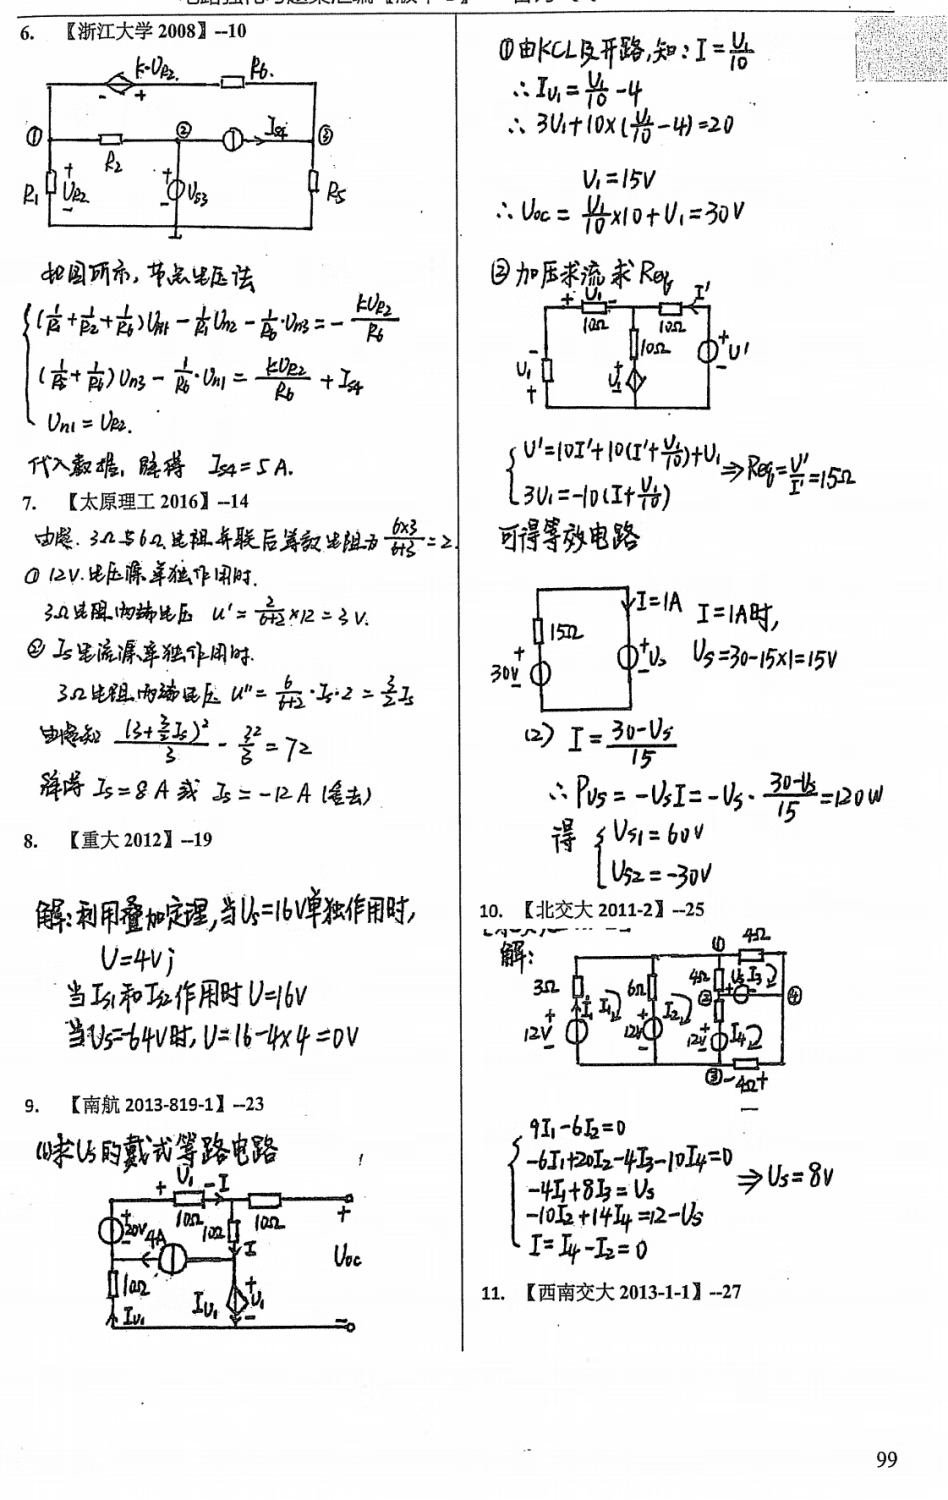 6. 【浙江大学 2008】--10
k·U_R2
R6
- +
①
②
③
R2
I_S4
R1
+ U_R2 -
+ U_S3 -
R5
如图所示，节点电压法
(1/R1+1/R2+1/R6)Un1-1/R1Un2-1/R6·Un3=-kU_R2/R6
(1/R5+1/R6)Un3-1/R6·Un1=kU_R2/R6+I_S4
Un1=U_R2.
代入数据，解得 I_S4=5A.
7. 【太原理工 2016】--14
由题，3Ω与6Ω电阻并联后等效电阻为 6×3/6+3=2
① 12V.电压源单独作用时.
3Ω电阻两端电压 u'=2/6+2×12=3V.
② Is电流源单独作用时.
3Ω电阻两端电压 u''=6/6+2·Is·2=3/2Is
由题知 (3+3/2Is)²/3-3²/3=72
解得 Is=8A或 Is=-12A(舍去)
8. 【重大 2012】--19
解:利用叠加定理,当Us=16V单独作用时,
U=4V;
当Is1和Is2作用时U=16V
当Us=-64V时,U=16-4×4=0V
9. 【南航 2013-819-1】--23
(1)求Us的戴式等路电路
+ U1 - I
10Ω
10Ω
+
20V
4A
10Ω
I
Uoc
10Ω
I_U1
I_U1
+ U1 -
-
①由KCL及开路,知:I=U1/10
∴I_U1=U1/10-4
∴3U1+10×(U1/10-4)=20
U1=15V
∴Uoc=U1/10×10+U1=30V
②加压求流求Req
+ U1 -
I'
10Ω
10Ω
10Ω
- U1 +
+ U1
+ U' -
U'=10I'+10(I'+U1/10)+U1
3U1=-10(I+U1/10)
⇒Req=U'/I'=15Ω
可得等效电路
I=1A
15Ω
30V
+ -
+ Us -
I=1A时,
Us=30-15×1=15V
(2) I=30-Us/15
∴P_US=-UsI=-Us·30-Us/15=120W
得 Us1=60V
Us2=-30V
10. 【北交大 2011-2】--25
解:
①
4Ω
3Ω
6Ω
4Ω
Us
I3
②
④
I
I1
I2
12V
12V
12V
I4
③
- 4Ω +
9I1-6I2=0
-6I1+20I2-4I3-10I4=0
-4I1+8I3=Us
-10I2+14I4=12-Us
I=I4-I2=0
⇒Us=8V
11. 【西南交大 2013-1-1】--27
99